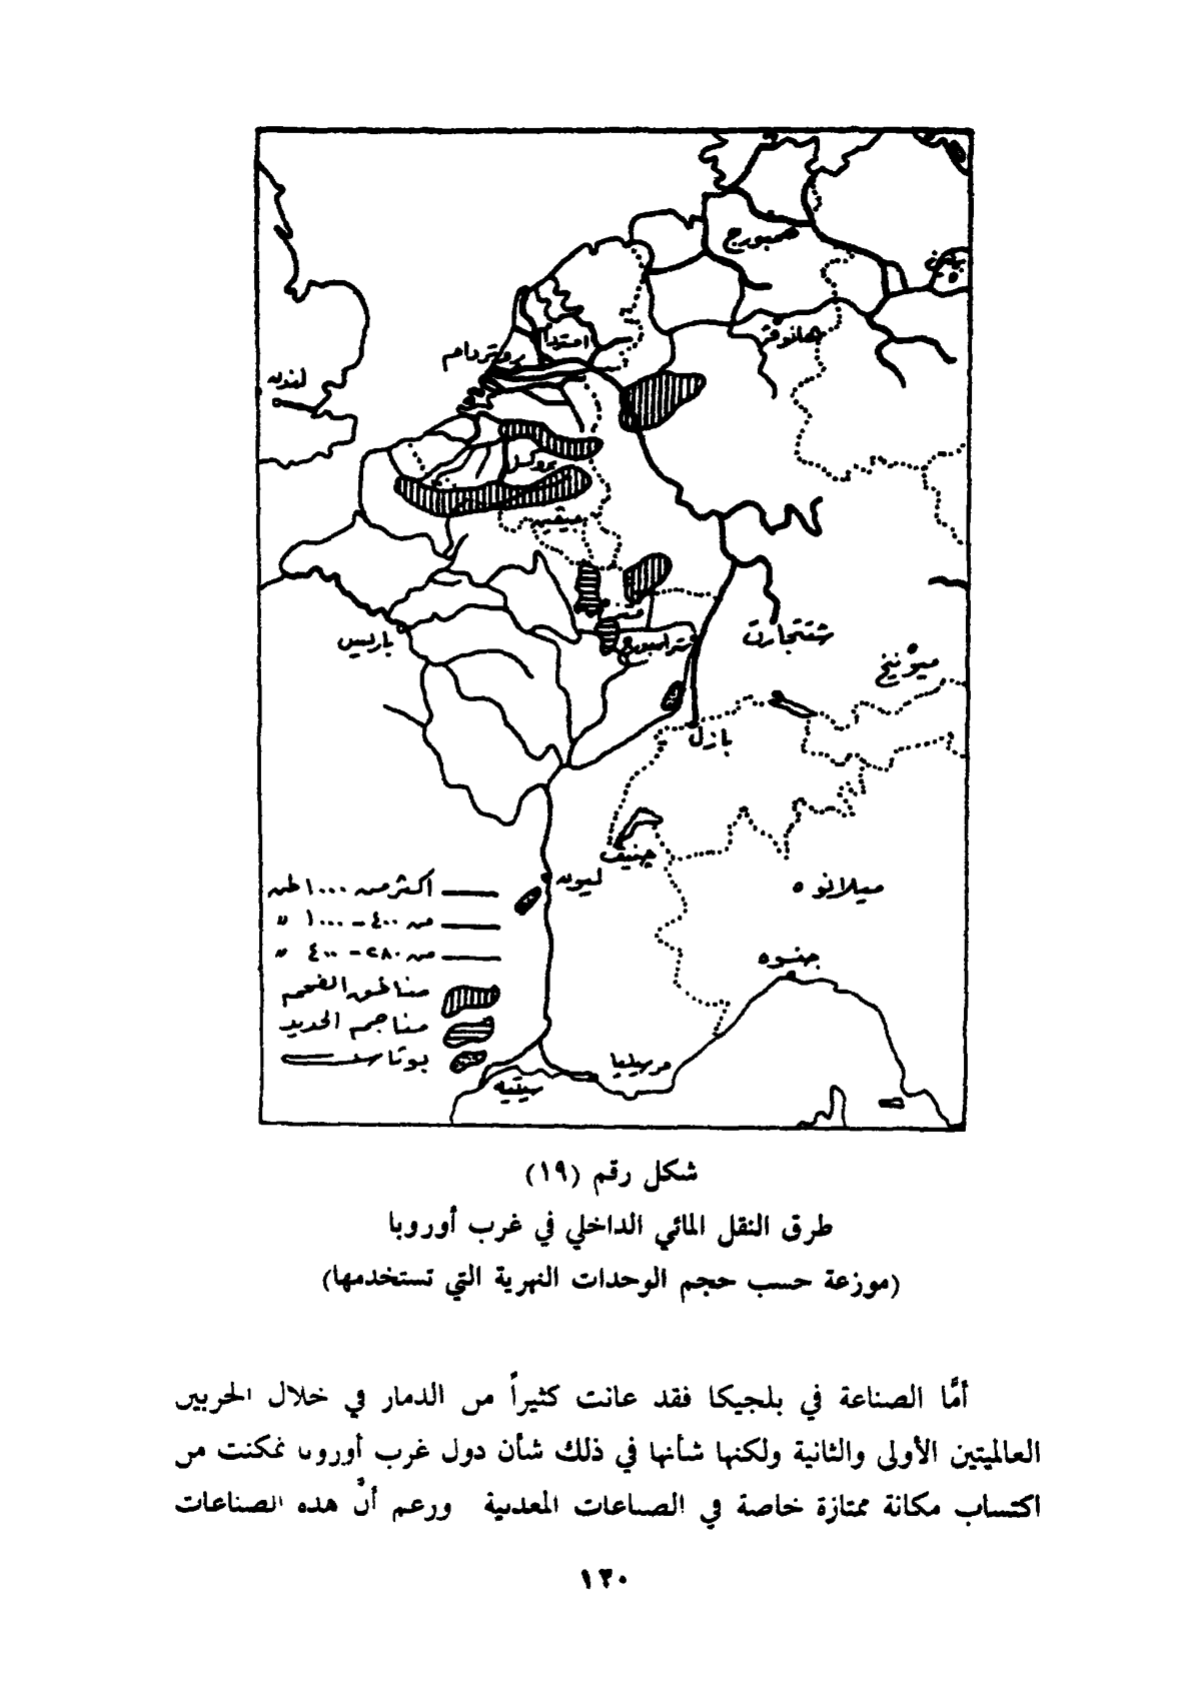 همبورج
برلين
هانوفر
امستردام
روتردام
لندن
بروكسل
ميتز
باريس
ستراسبورج
شتتجارت
ميونيخ
بازل
جنيف
ليون
ميلانو
جنوه
مرسيليا
سيتيه
أكثر من ١٠٠٠ طن
من ٤٠٠ – ١٠٠٠ "
من ٢٨٠ – ٤٠٠ "
مناطق الفحم
مناجم الحديد
بوتاس
شكل رقم (١٩)
طرق النقل المائي الداخلي في غرب أوروبا
(موزعة حسب حجم الوحدات النهرية التي تستخدمها)
أمَّا الصناعة في بلجيكا فقد عانت كثيراً من الدمار في خلال الحربين
العالميتين الأولى والثانية ولكنها شأنها في ذلك شأن دول غرب أوروبا تمكنت من
اكتساب مكانة ممتازة خاصة في الصناعات المعدنية ورغم أنَّ هذه الصناعات
١٣٠